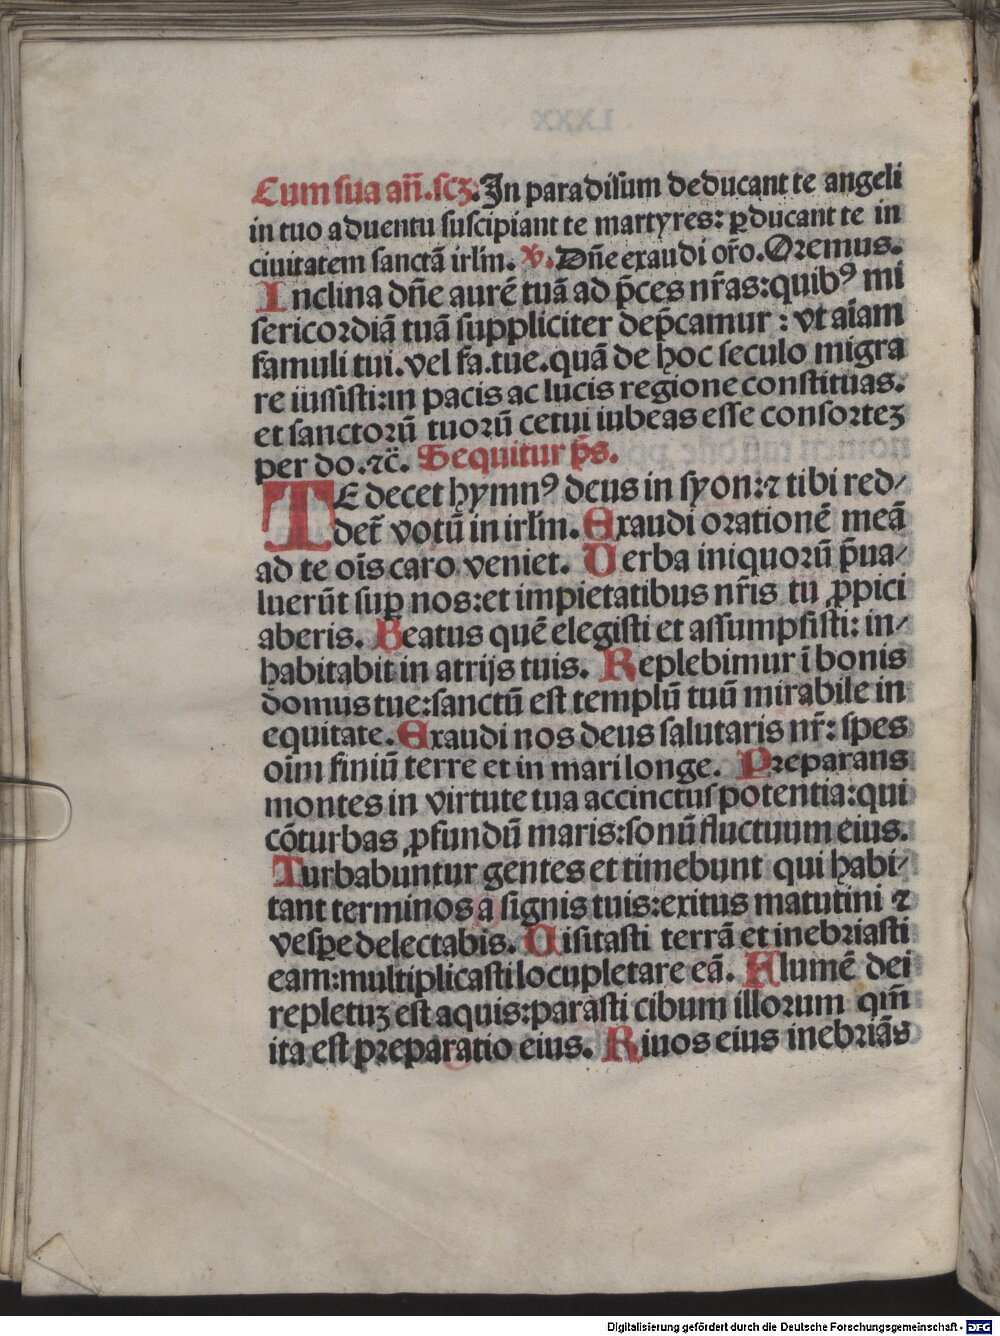 Cum sua añ.scꝫ: In paradisum deducant te angeli
in tuo aduentu suscipiant te martyres: ꝑducant te in
ciuitatem sanctā irlm̄. ℣. Dñe exaudi or̄o. Oremus.
Inclina dñe aurē tuā ad p̄ces nr̄as: quibꝰ mi
sericordiā tuā suppliciter dep̄camur: vt aīam
famuli tui. vel fa. tue. quā de hoc seculo migra
re iussisti: in pacis ac lucis regione constituas.
et sanctorū tuorū cetui iubeas esse consortez
per do. ⁊c̄. Sequitur p̄s.
TE decet hymnꝰ deus in syon: ⁊ tibi red/
det̄ votū in irlm̄. Exaudi orationē meā
ad te oīs caro veniet. Uerba iniquorū p̄ua/
luerūt suꝑ nos: et impietatibus nr̄is tu ꝓpici
aberis. Beatus quē elegisti et assumpsisti: in/
habitabit in atrijs tuis. Replebimur ī bonis
domus tue: sanctū est templū tuū mirabile in
equitate. Exaudi nos deus salutaris nr̄: spes
oīm finiū terre et in mari longe. Preparans
montes in virtute tua accinctus potentia: qui
cōturbas ꝓfundū maris: sonū fluctuum eius.
Turbabuntur gentes et timebunt qui habi/
tant terminos a signis tuis: exitus matutini ⁊
vesꝑe delectabis. Uisitasti terrā et inebriasti
eam: multiplicasti locupletare eā. Flumē dei
repletuꝫ est aquis: parasti cibum illorum qm̄
ita est preparatio eius. Riuos eius inebriās
Digitalisierung gefördert durch die Deutsche Forschungsgemeinschaft - DFG